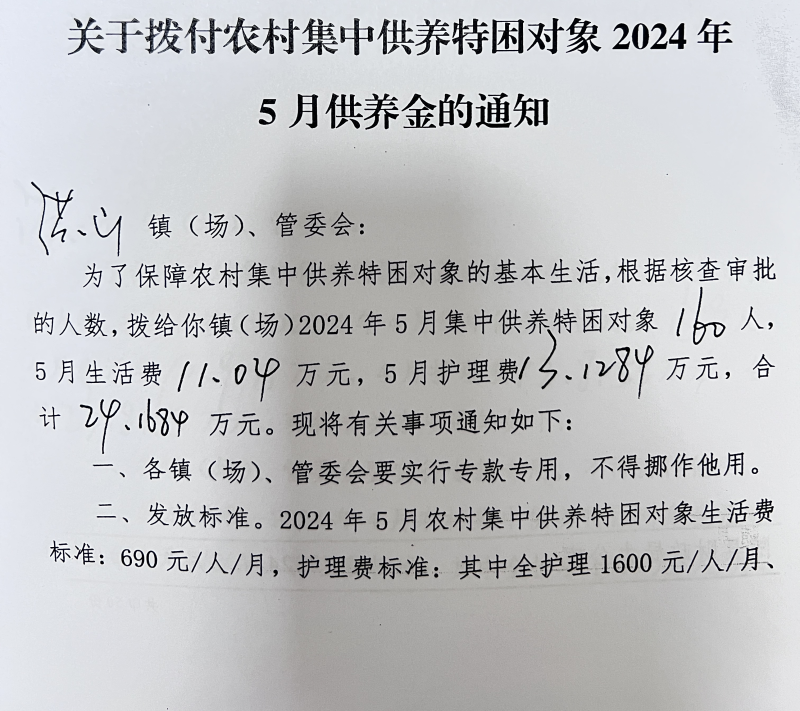 关于拨付农村集中供养特困对象 2024 年
5 月供养金的通知
镇（场）、管委会：
为了保障农村集中供养特困对象的基本生活，根据核查审批
的人数，拨给你镇（场）2024 年 5 月集中供养特困对象 160 人，
5 月生活费 11.04 万元，5 月护理费 13.1284 万元，合
计 24.1684 万元。现将有关事项通知如下：
一、各镇（场）、管委会要实行专款专用，不得挪作他用。
二、发放标准。2024 年 5 月农村集中供养特困对象生活费
标准：690 元/人/月，护理费标准：其中全护理 1600 元/人/月、